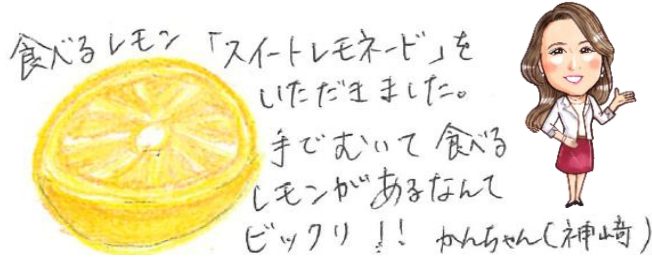 食べるレモン「スイートレモネード」を
いただきました。
手でむいて食べる
レモンがあるなんて
ビックリ!! かんちゃん(神﨑)